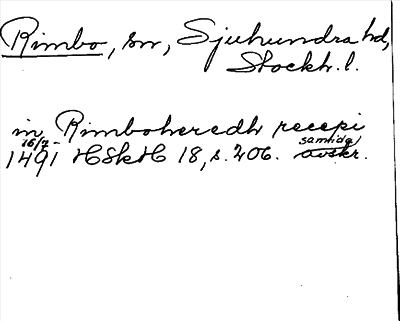 Rimbo, sn, Sjuhundra hd,
Stockh. l.
in Rimboheredh recepi
16/7 samtida
1491 HSkH 18, s. 206. avskr.